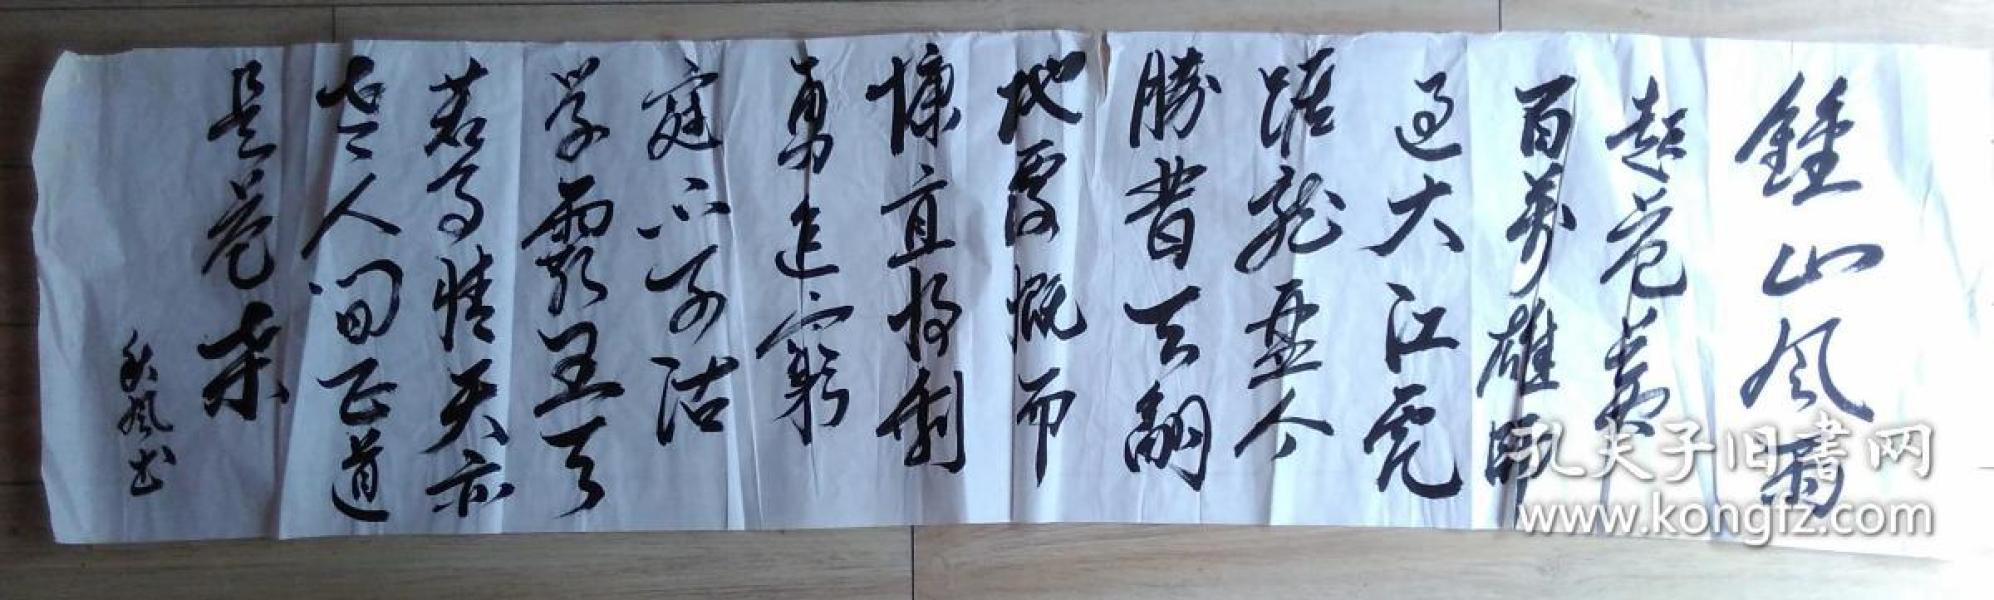 鍾山风雨
起苍黄
百万雄師
过大江虎
踞龙盘今
勝昔天翻
地覆慨而
慷宜将剩
勇追窮
寇不可沽
学霸王天
若有情天亦
老人间正道
是苍桑
秋风书
孔夫子旧书网
www.kongfz.com